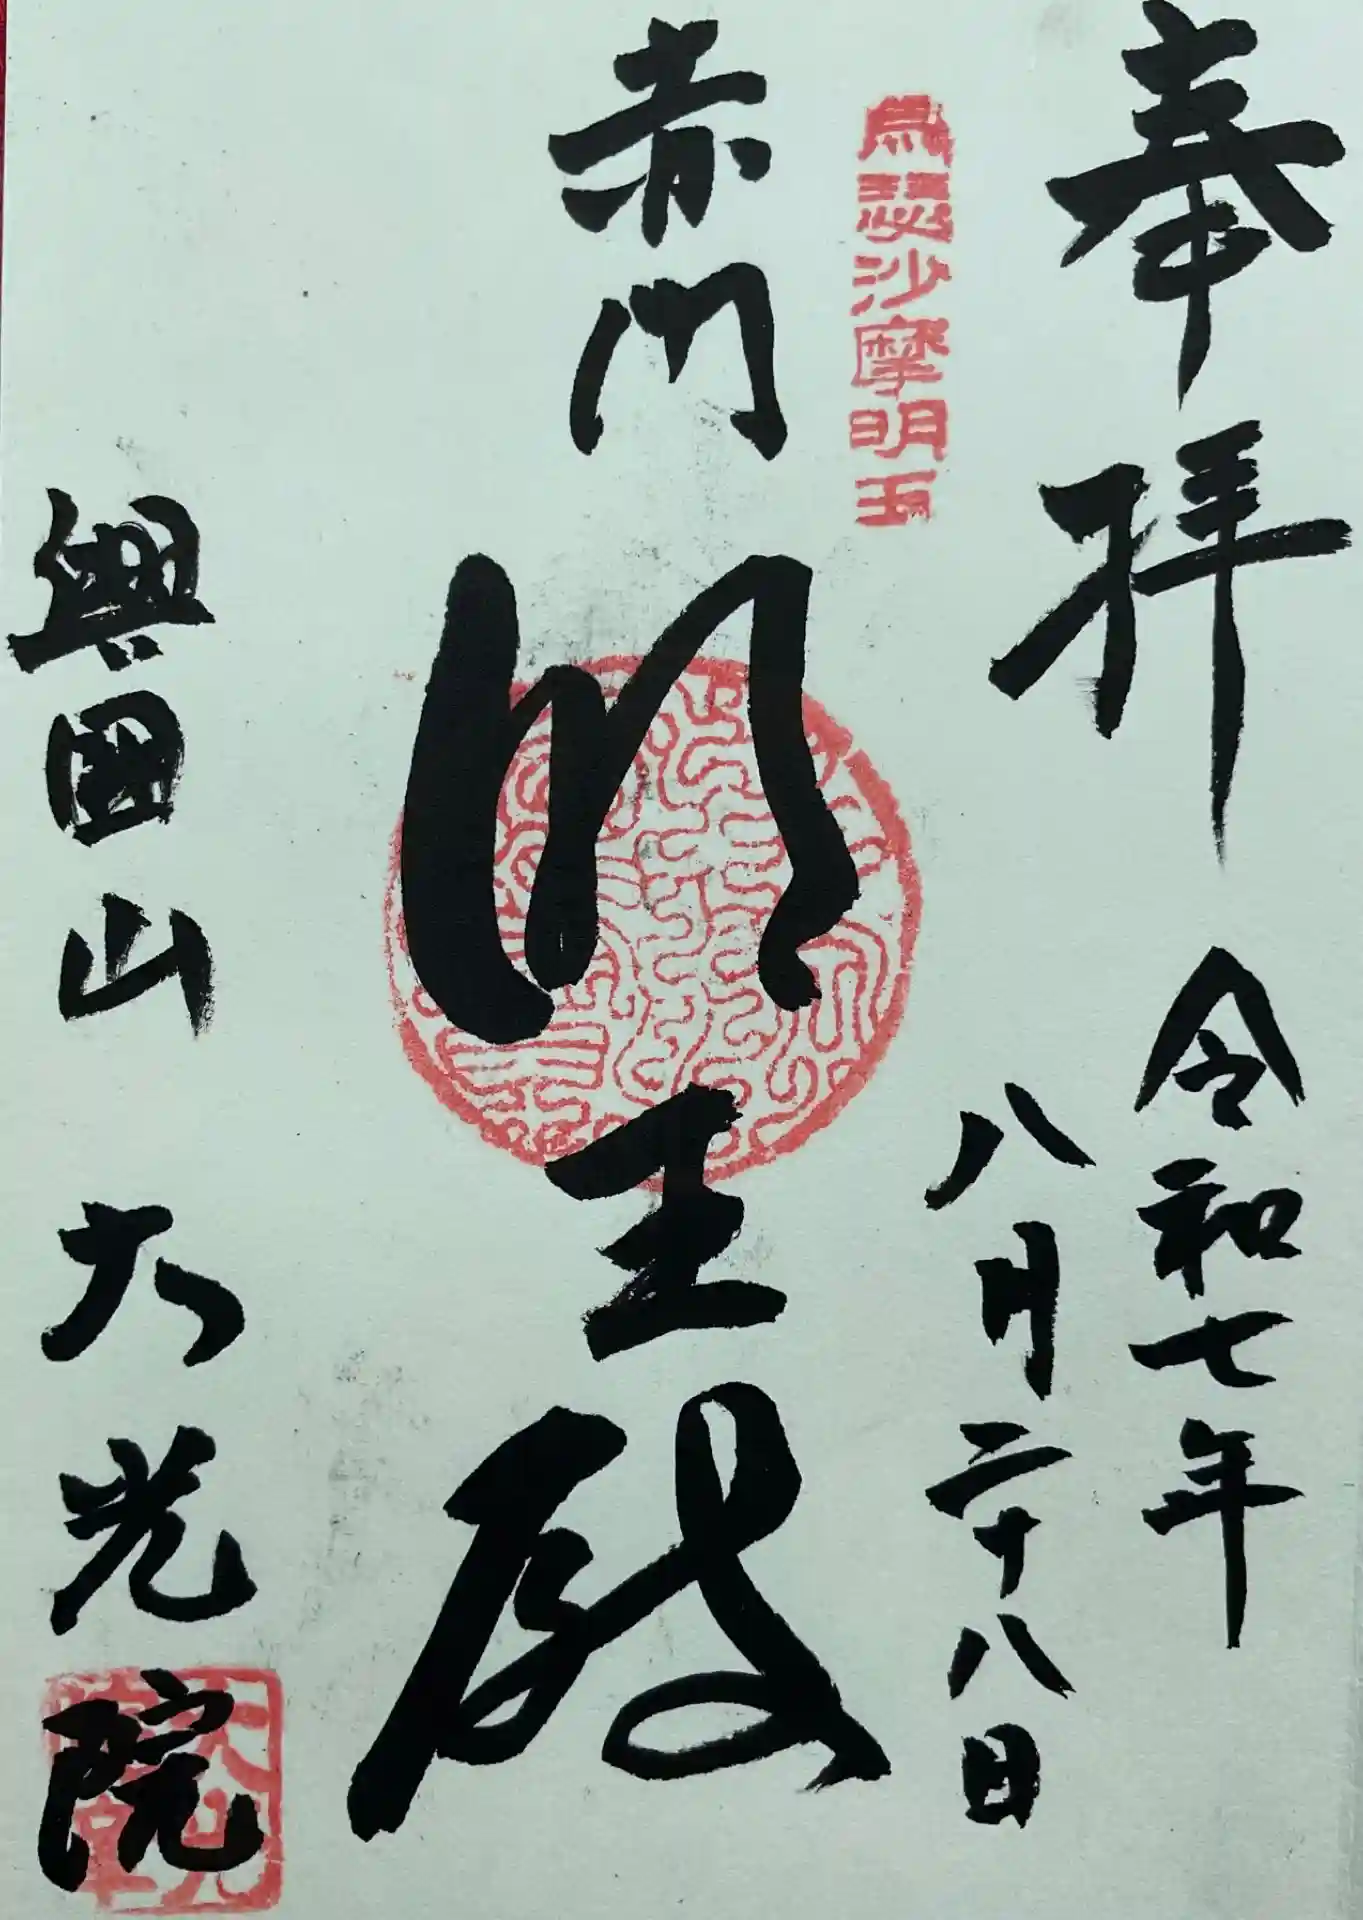 奉拝
令和七年
八月二十八日
烏瑟沙摩明王
赤門
明王殿
興国山 大光院